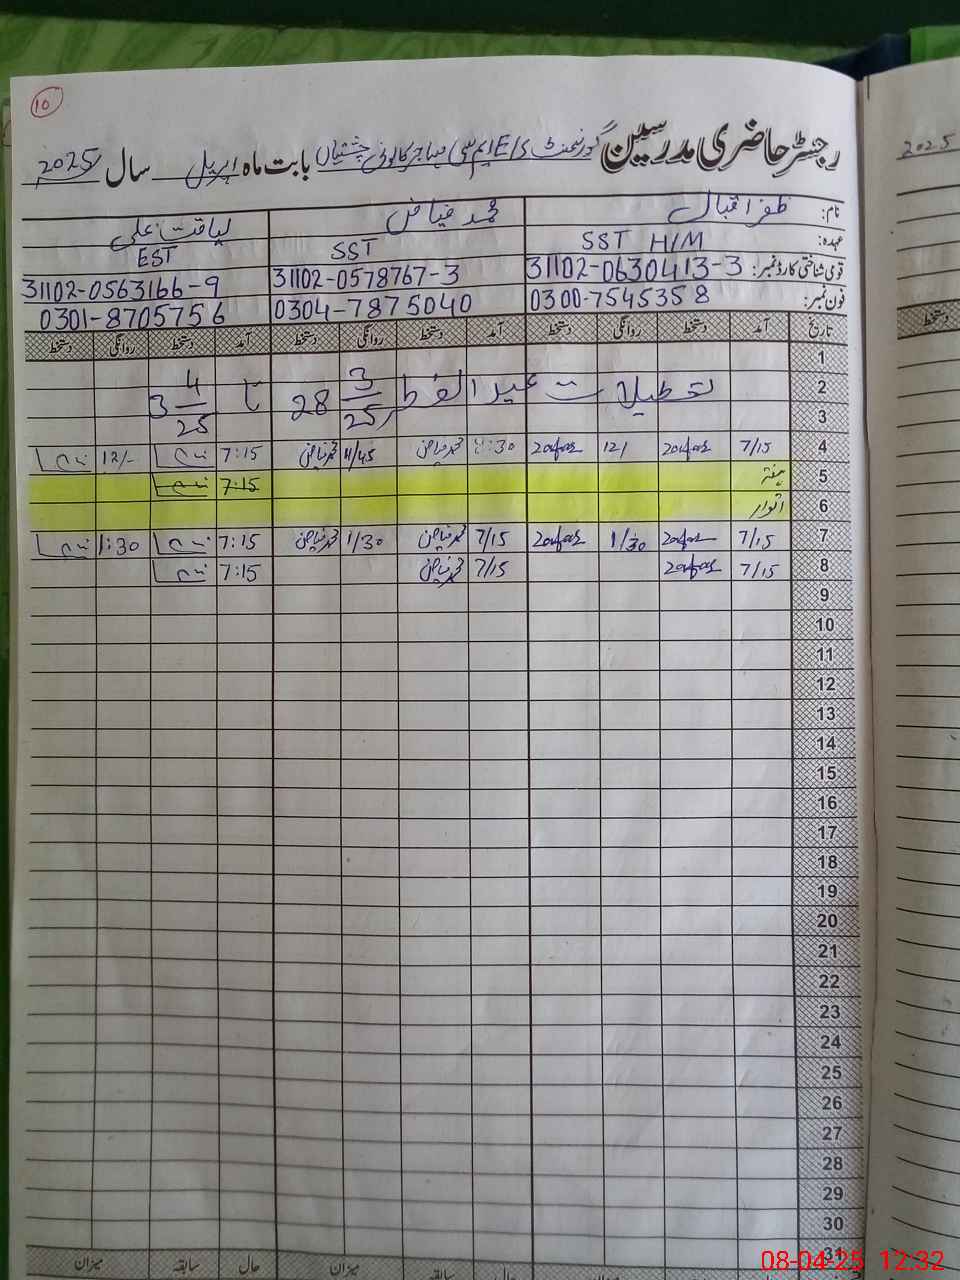 10
رجسٹر حاضری مدرسین گورنمنٹ ایم سی مہاجر کالونی چشتیاں بابت ماہ اپریل سال 2025
2025
نام: ظفر اقبال محمد فیاض لیاقت علی
عہدہ: SST H/M SST EST
قومی شناختی کارڈ نمبر: 31102-0630413-3 31102-0578767-3 31102-0563166-9
فون نمبر: 0300-7545358 0304-7875040 0301-8705756
تاریخ آمد دستخط روانگی دستخط آمد دستخط روانگی دستخط آمد دستخط روانگی دستخط
دستخط
1
2 تعطیلات عید الفطر 28 3/25 تا 3 4/25
3
4 7/15 12/ :30 محمد فیاض 11/45 محمد فیاض 7:15 12/-
5 ہفتہ 7:15
6 اتوار
7 7/15 1/30 7/15 محمد فیاض 1/30 محمد فیاض 7:15 1:30
8 7/15 7/15 محمد فیاض 7:15
9
10
11
12
13
14
15
16
17
18
19
20
21
22
23
24
25
26
27
28
29
30
31
حال سابقہ میزان حال سابقہ میزان
08-04-25 12:32